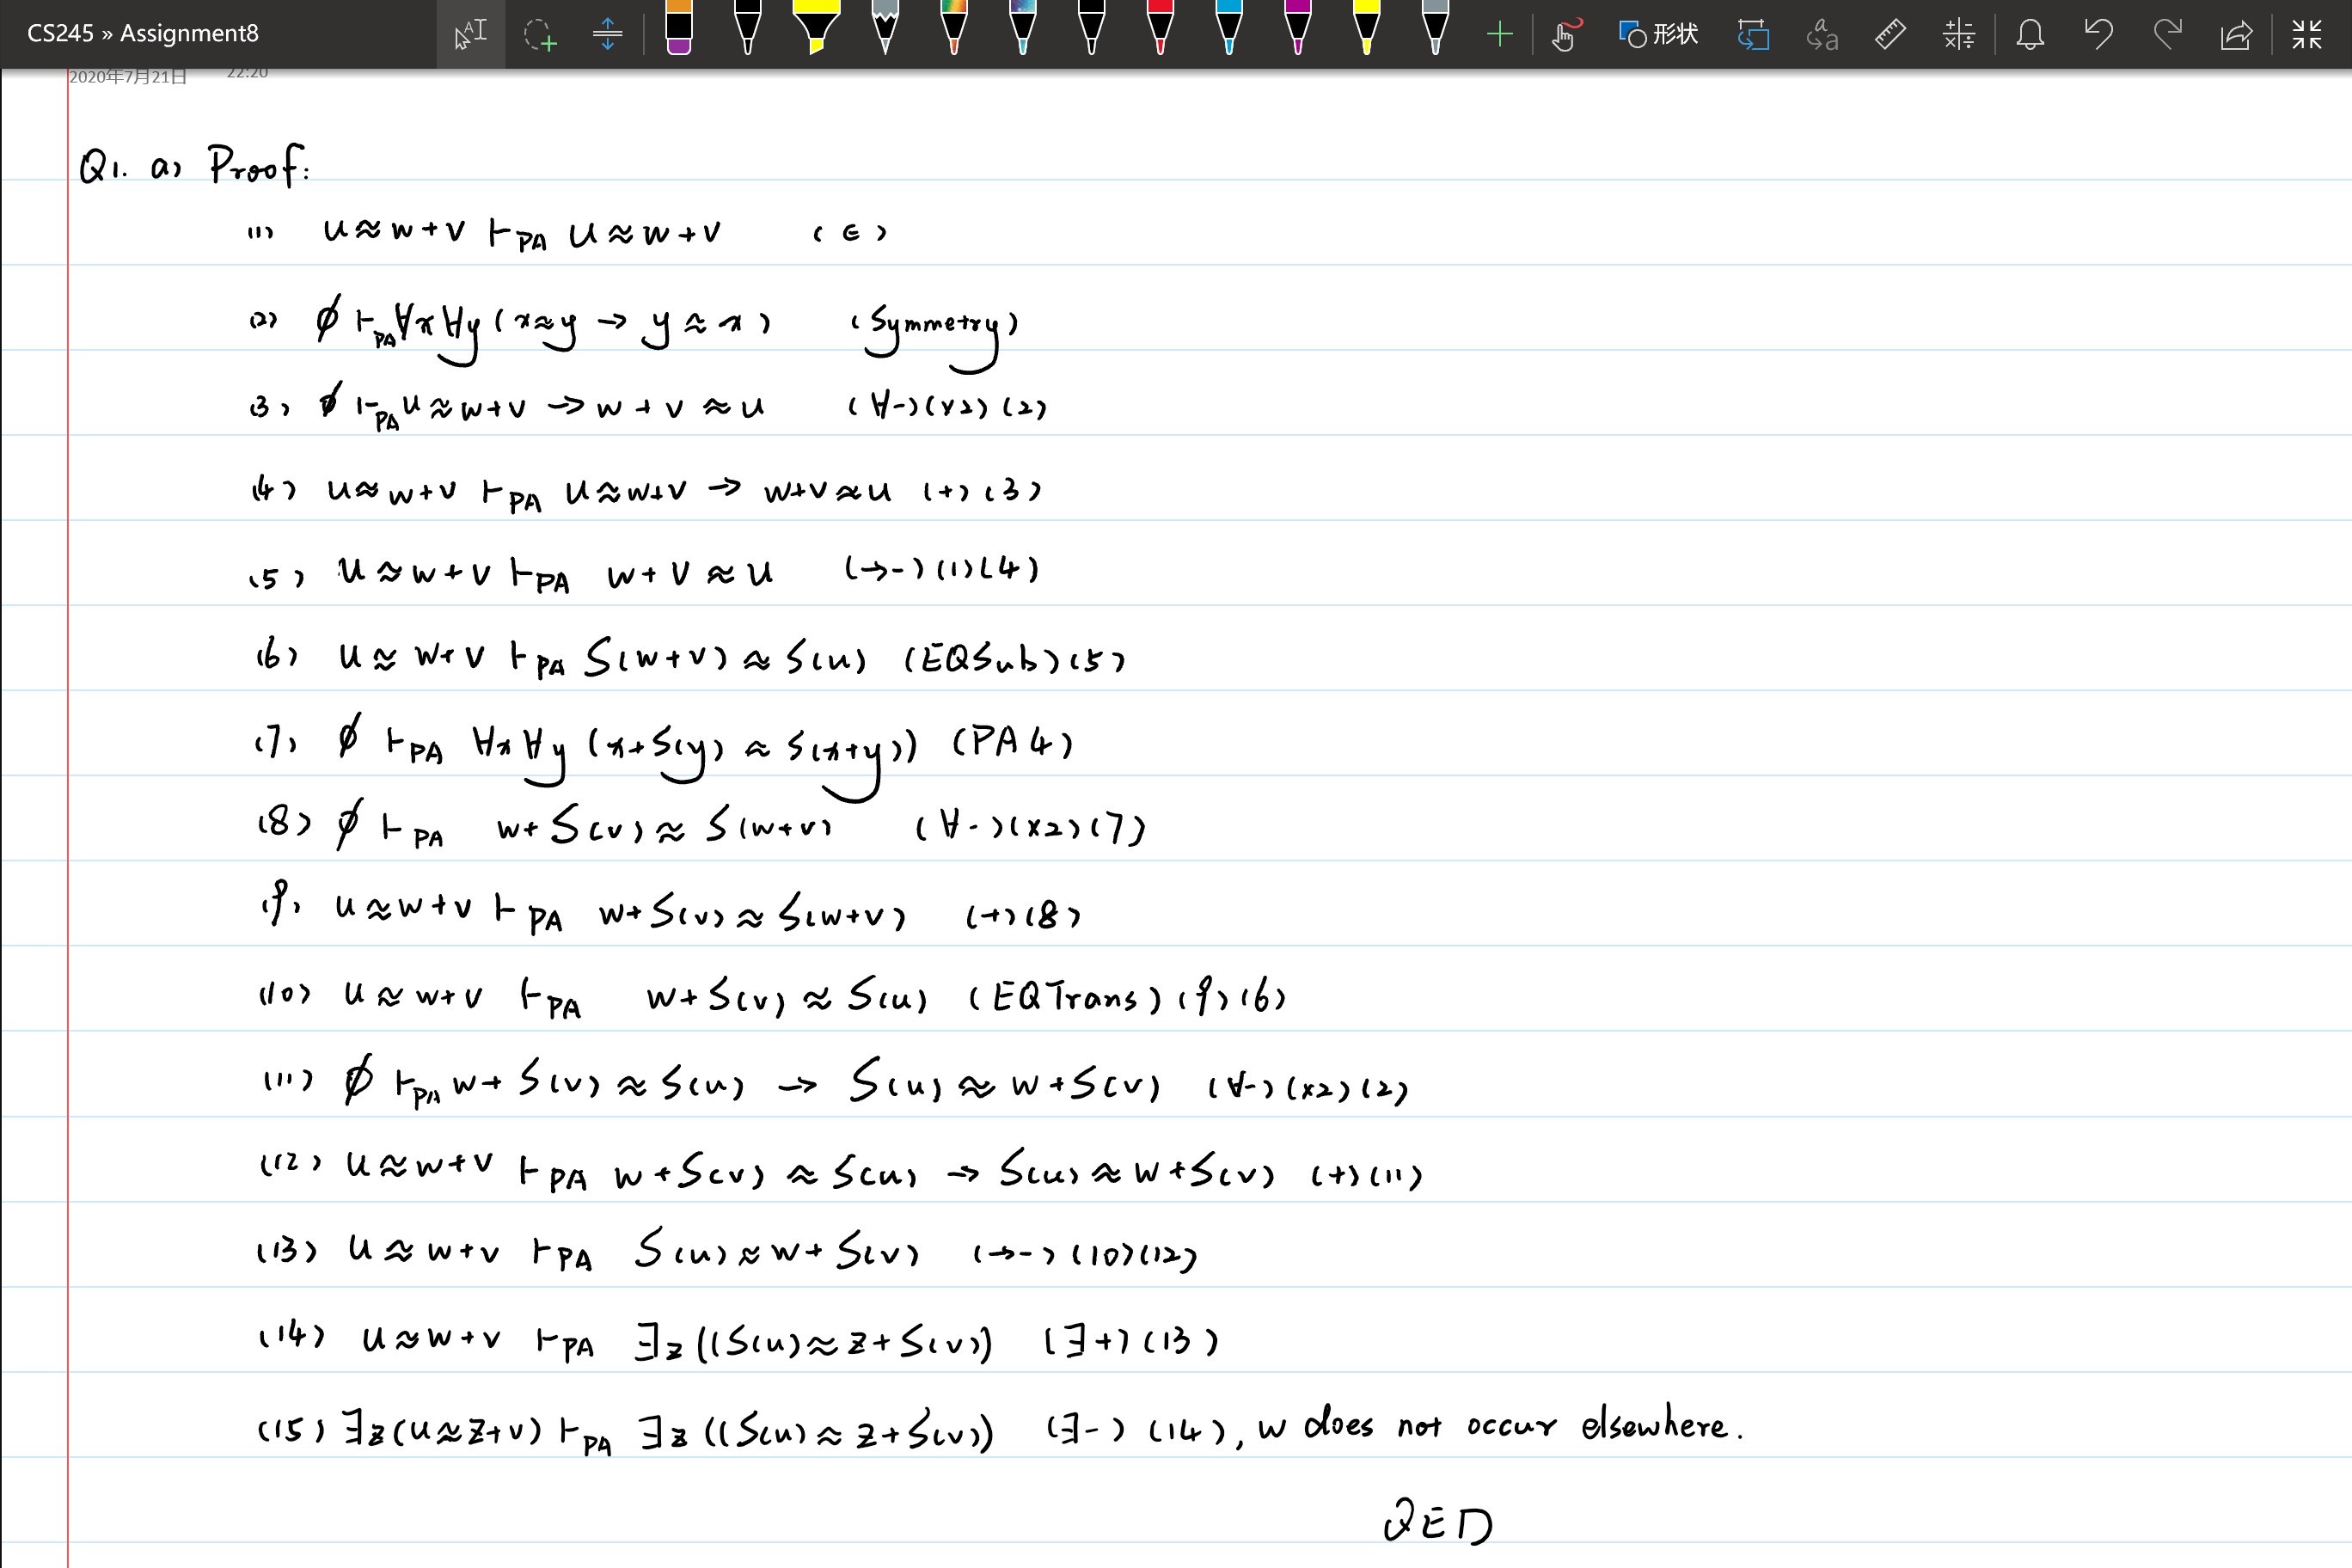 CS245 » Assignment8
形状
2020年7月21日 22:20
Q1. a) Proof:
(1) u≈w+v ⊢PA u≈w+v (∈)
(2) ∅ ⊢PA ∀x∀y(x≈y → y≈x) (Symmetry)
(3) ∅ ⊢PA u≈w+v → w+v≈u (∀-)(×2)(2)
(4) u≈w+v ⊢PA u≈w+v → w+v≈u (+)(3)
(5) u≈w+v ⊢PA w+v≈u (→-)(1)(4)
(6) u≈w+v ⊢PA S(w+v)≈S(u) (EQSub)(5)
(7) ∅ ⊢PA ∀x∀y(x+S(y)≈S(x+y)) (PA4)
(8) ∅ ⊢PA w+S(v)≈S(w+v) (∀-)(×2)(7)
(9) u≈w+v ⊢PA w+S(v)≈S(w+v) (+)(8)
(10) u≈w+v ⊢PA w+S(v)≈S(u) (EQTrans)(9)(6)
(11) ∅ ⊢PA w+S(v)≈S(u) → S(u)≈w+S(v) (∀-)(×2)(2)
(12) u≈w+v ⊢PA w+S(v)≈S(u) → S(u)≈w+S(v) (+)(11)
(13) u≈w+v ⊢PA S(u)≈w+S(v) (→-)(10)(12)
(14) u≈w+v ⊢PA ∃z((S(u)≈z+S(v)) (∃+)(13)
(15) ∃z(u≈z+v) ⊢PA ∃z((S(u)≈z+S(v)) (∃-)(14), w does not occur elsewhere.
QED